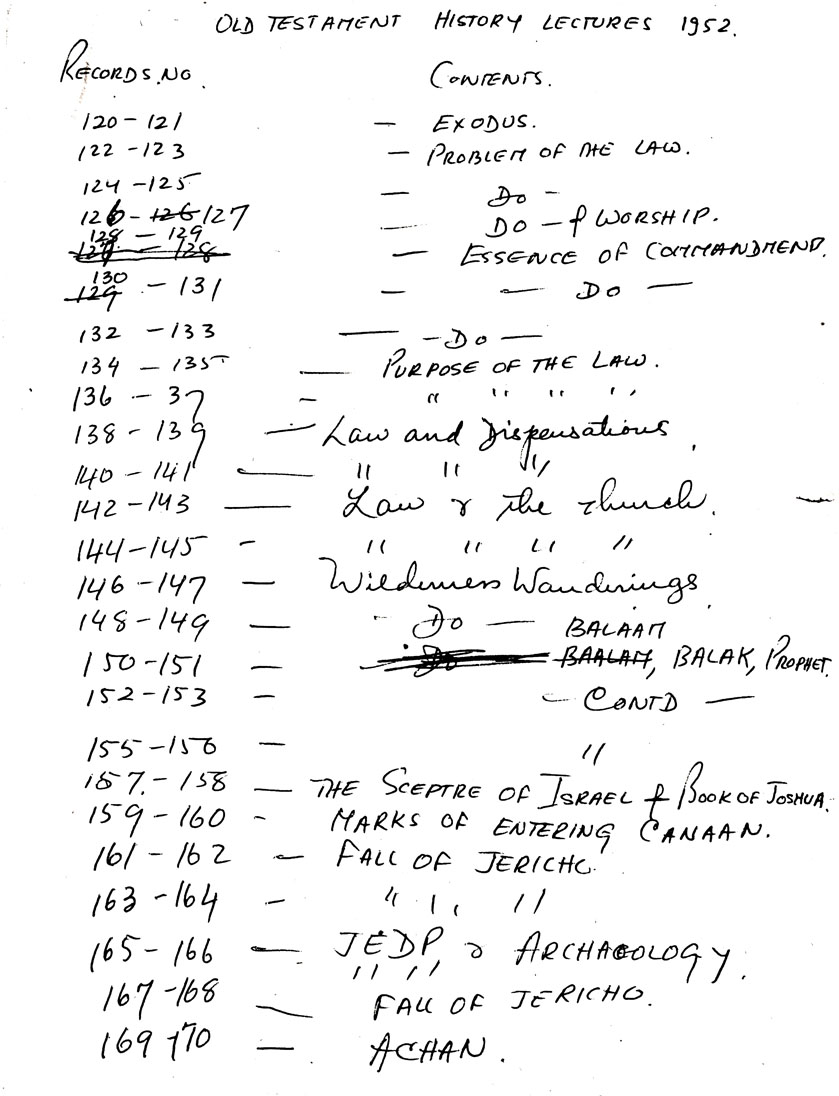 OLD TESTAMENT HISTORY LECTURES 1952.
RECORDS. NO CONTENTS.
120 - 121 — EXODUS.
122 - 123 — PROBLEM OF THE LAW.
124 - 125 — DO -
126 - 126 127 — DO - & WORSHIP.
128 - 129
127 - 128 — ESSENCE OF COMMANDMEND.
130
129 - 131 - — DO —
132 - 133 — - DO —
134 - 135 — PURPOSE OF THE LAW.
136 - 37 - " " " "
138 - 139 — Law and Dispensations
140 - 141 — " " "
142 - 143 — Law & the church. —
144 - 145 - " " " "
146 - 147 — Wilderness Wanderings
148 - 149 — - DO — BALAAM
150 - 151 — DO BAALAM, BALAK, PROPHET.
152 - 153 - - CONTD —
155 - 156 - "
157. - 158 — THE SCEPTRE OF ISRAEL & BOOK OF JOSHUA.
159 - 160 - MARKS OF ENTERING CANAAN.
161 - 162 — FALL OF JERICHO.
163 - 164 - " " "
165 - 166 — JEDP, & ARCHAEOLOGY.
" "
167 - 168 — FALL OF JERICHO.
169 - 170 — ACHAN.